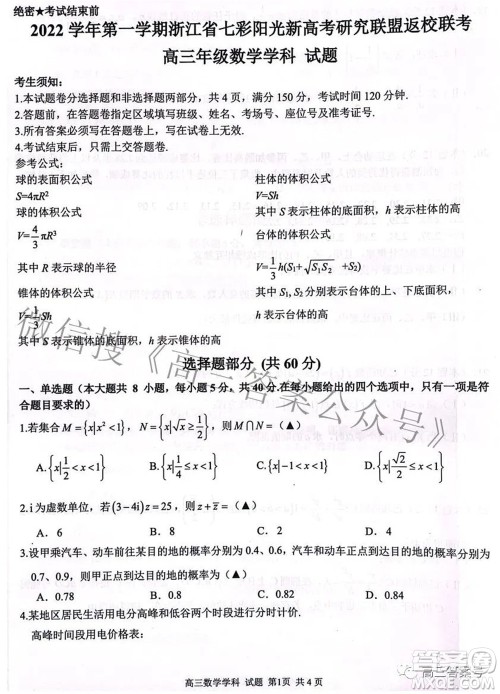 绝密★考试结束前
2022 学年第一学期浙江省七彩阳光新高考研究联盟返校联考
高三年级数学学科 试题
考生须知：
1.本试题卷分选择题和非选择题两部分，共 4 页，满分 150 分，考试时间 120 分钟.
2.答题前，在答题卷指定区域填写班级、姓名、考场号、座位号及准考证号.
3.所有答案必须写在答题卷上，写在试卷上无效.
4.考试结束后，只需上交答题卷.
参考公式：
球的表面积公式 柱体的体积公式
S=4πR² V=Sh
球的体积公式 其中 S 表示柱体的底面积，h 表示柱体的高
V=4/3 πR³ 台体的体积公式
其中 R 表示球的半径 V=1/3 h(S₁+√S₁S₂+S₂)
锥体的体积公式 其中 S₁, S₂ 分别表示台体的上、下底面积，
V=1/3 Sh h 表示为台体的高
其中 S 表示锥体的底面积，h 表示锥体的高
选择题部分 (共 60 分)
一、单选题（本大题共 8 小题，每小题 5 分，共 40 分.在每小题给出的四个选项中，只有一项是符
合题目要求的）
1.若集合 M={x|x²<1}，N={x|√x≥1/2}，则 M∩N=（▲）
A.{x|1/2<x<1} B.{x|1/4≤x<1} C.{x|-1<x<1} D.{x|√2/2≤x<1}
2.i 为虚数单位，若(3-4i)z=25，则 z+z̄=（▲）
A. 6 B. 8 C. 3 D. 4
3.设甲乘汽车、动车前往某目的地的概率分别为 0.4、0.6，汽车和动车正点到达目的地的概率分别为
0.7、0.9，则甲正点到达目的地的概率为（▲）
A. 0.78 B. 0.8 C. 0.82 D. 0.84
4.某地区居民生活用电分高峰和低谷两个时段进行分时计价.
高峰时间段用电价格表：
高三数学学科 试题 第1页 共 4 页
微信搜《高三答案公众号》